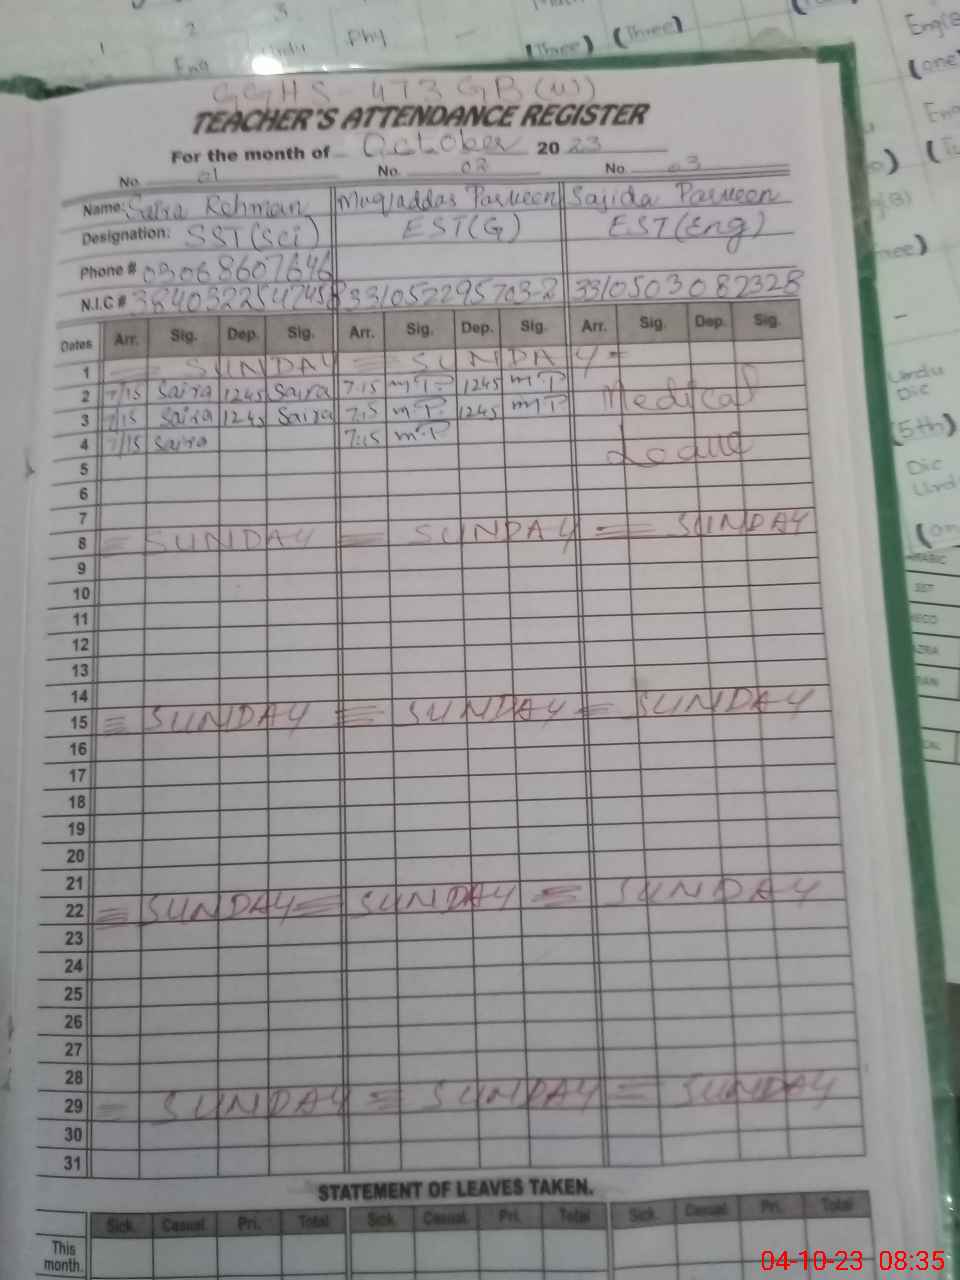 1 2 3
Eng Urdu Phy —
(Three) (Three)
(one)
Eng
GGHS 473 GB (W)
TEACHER'S ATTENDANCE REGISTER
For the month of October 20 23
No. 01 No. 02 No. 03
Name: Saira Rehman Muqaddas Parveen Sajida Parveen
Designation: SST(Sci) EST(G) EST(Eng)
Phone # 03068607646
N.I.C # 33105030 82328
Dates Arr. Sig. Dep. Sig. Arr. Sig. Dep. Sig. Arr. Sig. Dep. Sig.
1 = SUNDAY = SUNDAY =
2 7/15 Saira 1245 Saira 7:15 m.P 1245 m.P Medical
3 7/15 Saira 1245 Saira 7:15 m.P. 1245 m.P
4 7/15 Saira 7:15 m.P Leave
5
6
7
8 = SUNDAY = SUNDAY = SUNDAY
9
10
11
12
13
14
15 = SUNDAY = SUNDAY = SUNDAY
16
17
18
19
20
21
22 = SUNDAY = SUNDAY = SUNDAY
23
24
25
26
27
28
29 = SUNDAY = SUNDAY = SUNDAY
30
31
STATEMENT OF LEAVES TAKEN.
Sick. Casual. Pri. Total Sick. Casual. Pri. Total Sick. Casual. Pri. Total
This
month.
Urdu
Dic
(5th)
Dic
Urdu
ARABIC
SST
04-10-23 08:35